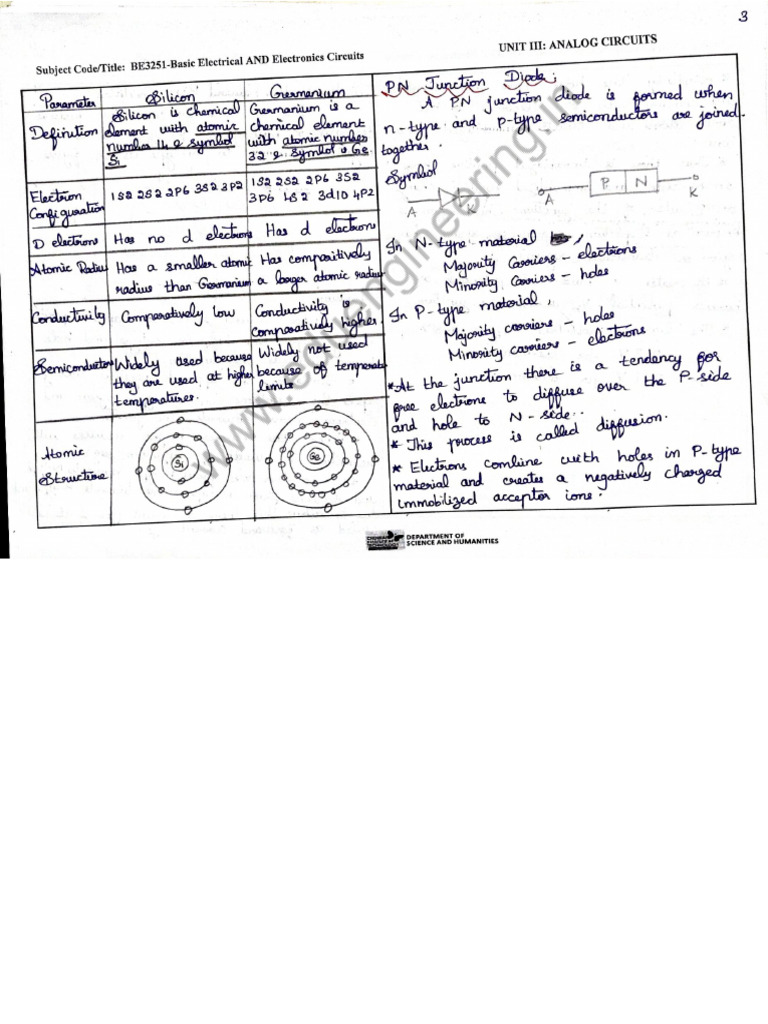 3
Subject Code/Title: BE3251-Basic Electrical AND Electronics Circuits
UNIT III: ANALOG CIRCUITS
Parameter
Silicon
Germanium
Definition
Silicon is chemical
element with atomic
number 14 & symbol
Si
Germanium is a
chemical element
with atomic number
32 & symbol is Ge.
Electron
Configuration
1S2 2S2 2P6 3S2 3P2
1S2 2S2 2P6 3S2
3P6 4S2 3d10 4P2
D electrons
Has no d electrons
Has d electrons
Atomic Radius
Has a smaller atomic
radius than Germanium
Has compositively
a larger atomic radius
Conductivity
Comparatively low
Conductivity is
comparatively higher.
Semiconductors
Widely used because
they are used at higher
temperatures.
Widely not used
because of temperate
limits
Atomic
Structure
Si
Ge
PN Junction Diode:
A PN junction diode is formed when
n-type and p-type semiconductors are joined
together.
Symbol
A
K
A
P
N
K
In N-type material
Majority Carriers - electrons
Minority Carriers - holes
In P-type material,
Majority carriers - holes
Minority carriers - electrons
*At the junction there is a tendency for
free electrons to diffuse over the P-side
and hole to N-side.
* This process is called diffusion.
* Electrons combine with holes in P-type
material and creates a negatively charged
immobilized acceptor ions.
DEPARTMENT OF
SCIENCE AND HUMANITIES